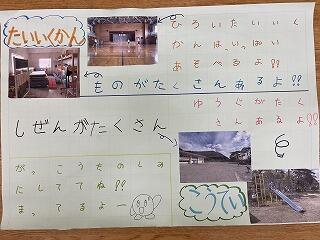 たいいくかん
ひろいたいいく
かんは、いっぱい
あそべるよ!!
ものがたくさんあるよ!!
ゆうぐがたく
さんあるよ!!
しぜんがたくさん
がっこうたのしみ
にしててね!!
まってるよー
こうてい